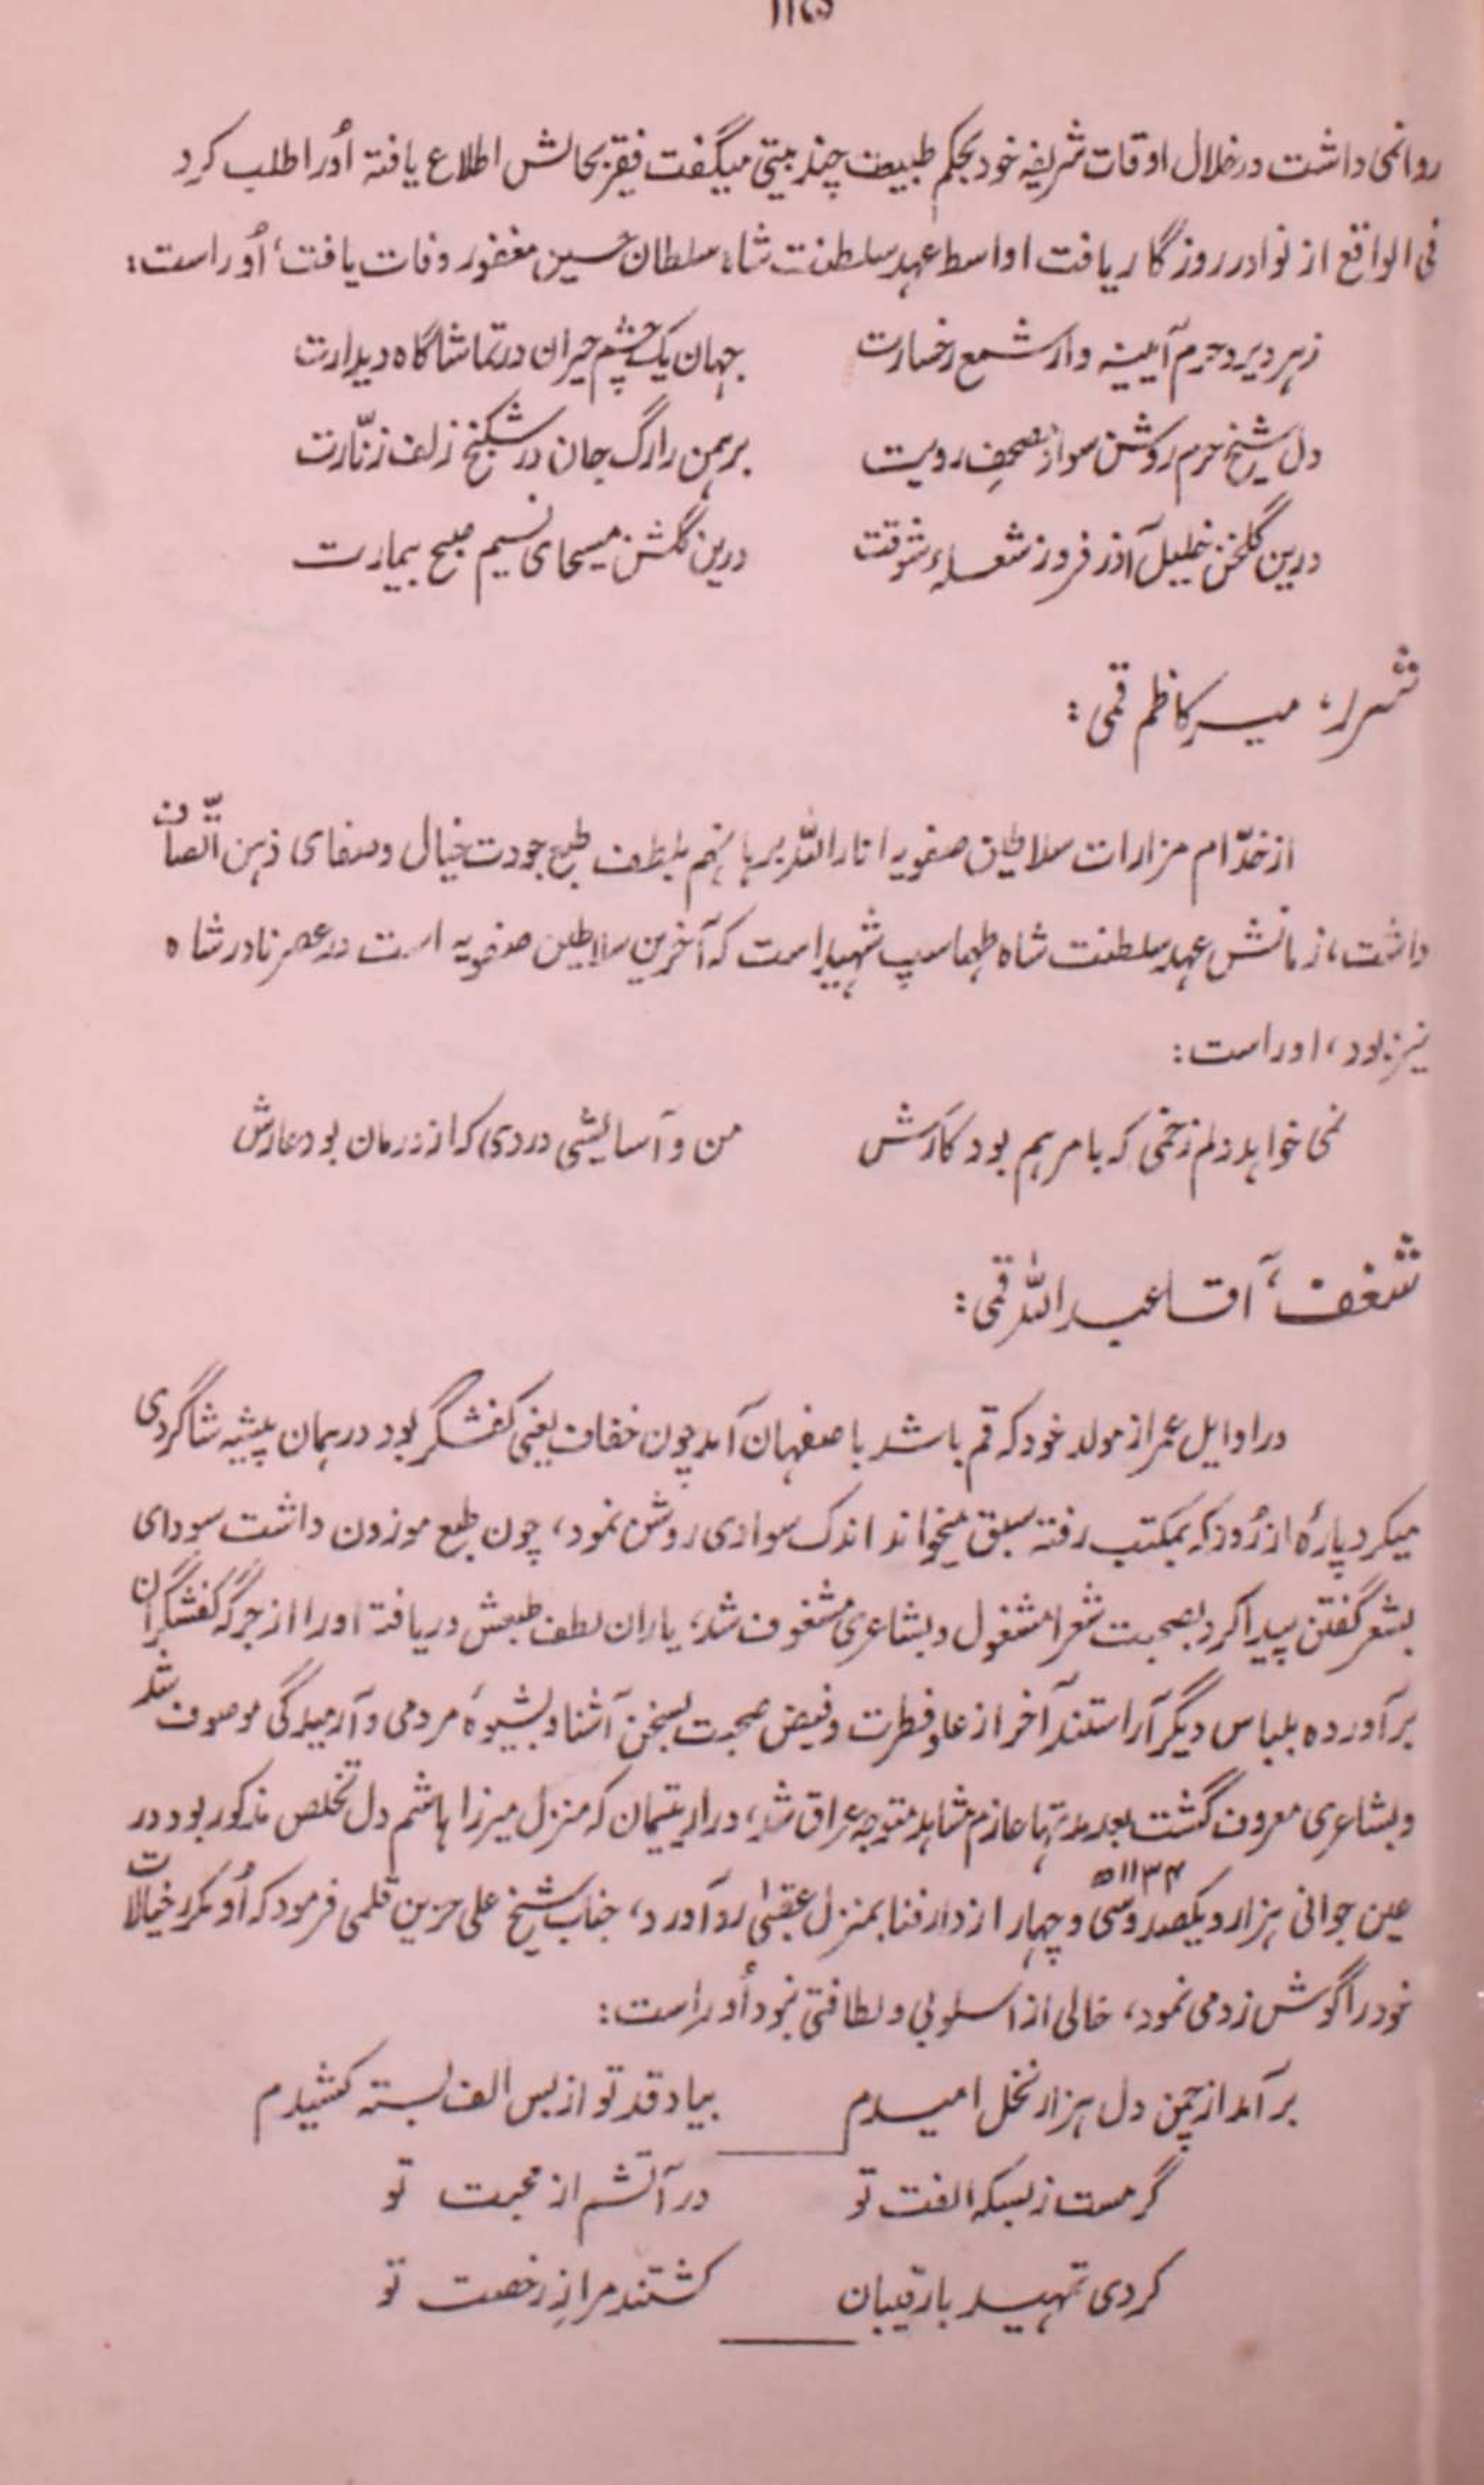 روا نمی داشت در خلال اوقات شریفه خود بحکم طبیعت چند بیتی میگفت فقیر بحالش اطلاع یافته اُورا طلب کرد
فی الواقع از نوادر روزگار یافت اواسط عهد سلطنت شاه سلطان حسین مغفور وفات یافت، اُوراست:
زهر دیر و حرم آیینه دار شمع رخسارت جهان یک چشم حیران در تماشاگاه دیدارت
دل شیخ حرم روشن سواد مصحفِ رویت برهمن را رگ جان در شکنج زلف زنّارت
درین گلخن خلیل آذر فروز شعلهء شوقت درین گلشن مسیحای نسیم صبح بیمارت
شرر، میر کاظم قمی:
از خدّام مزارات سلاطین صفویه انار اللّه برهانهم بلطف طبع جودت خیال و صفای ذهن اتّصاف
داشت، زمانش عهد سلطنت شاه طهماسپ شهید است که آخرین سلاطین صفویه است در عصر نادر شاه
نیز بود، اوراست:
نمی خواهد دلم زخمی که با مرهم بود کارش من و آسایشی دردی که از درمان بود عارش
شغف، آقا عبد اللّٰه قمی:
در اوایل عمر از مولد خود که قم باشد باصفهان آمد چون خفاف یعنی کفشگر بود در همان پیشه شاگردی
میکرد پارهٔ از رُوز که بمکتب رفته سبق میخواند اندک سوادی روشن نمود، چون طبع موزون داشت سودای
بشعر گفتن پیدا کرد بصحبت شعرا مشغول و بشاعری مشغوف شد، یاران لطف طبعش دریافته اورا از جرگه کفشگران
برآورده بلباس دیگر آراستند آخر از علو فطرت و فیض صحبت بسخن آشنا و بشیوهٔ مردمی و آرمیدگی موصوف شد
و بشاعری معروف گشت بعد مدتها عازم مشاهد متوجه عراق شد، در ارتیمان که منزل میرزا هاشم دل تخلص مذکور بود در
عین جوانی هزار و یکصد و سی و چهار ۱۱۳۴ھ از دار فنا بمنزل عقبیٰ رو آورد، جناب شیخ علی حزین قلمی فرمود که اُو مکرر خیالات
خود را گوش زد می نمود، خالی از اسلوبی و لطافتی نبود اُوراست:
برآمد از چمن دل هزار نخل امیدم بیاد قد تو از بس الف بسینه کشیدم
گرمست ز بسکه الفت تو در آتشم از محبت تو
کردی تمهید با رقیبان کشتند مرا ز رخصت تو